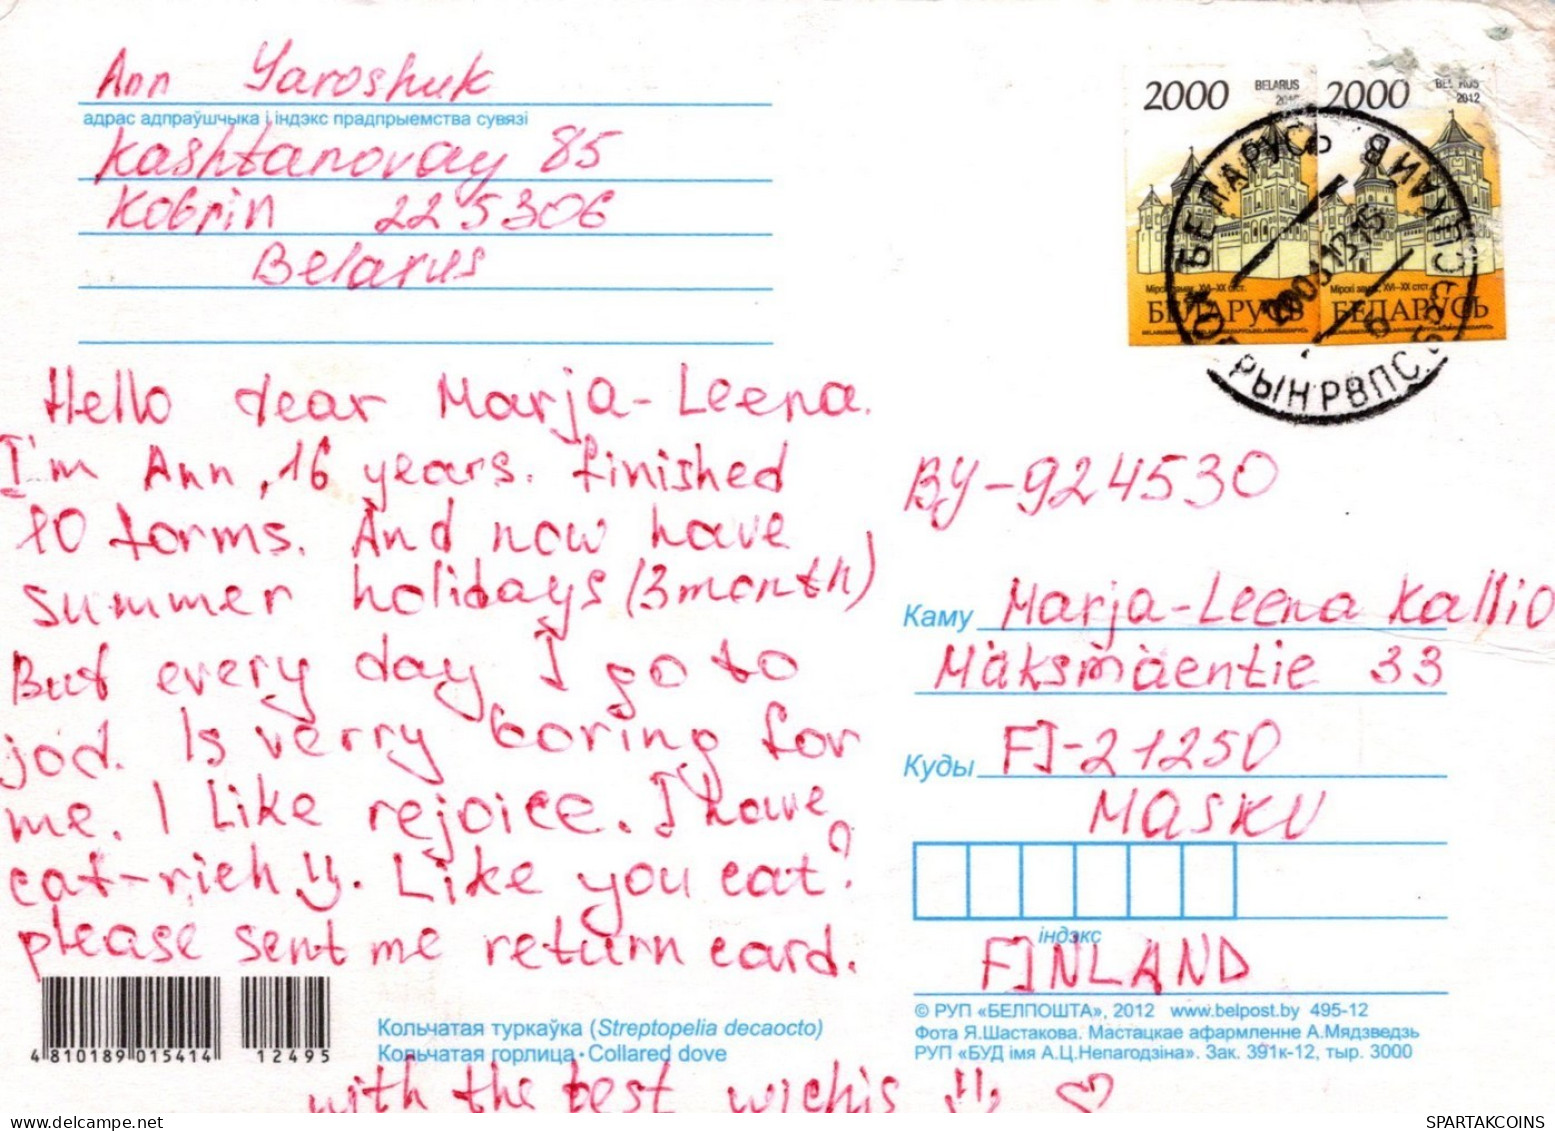 Ann Yaroshuk
адрас адпраўшчыка і індэкс прадпрыемства сувязі
Kashtanovay 85
Kobrin 225306
Belarus
2000 BELARUS
2000 2012
Мірскі замак, XVI–XX стст.
Мірскі замак, XVI–XX стст.
БЕЛАРУСЬ
БЕЛАРУСЬ
БЕЛАРУСЬ
Hello dear Marja-Leena.
I'm Ann, 16 years. finished
10 forms. And now have
summer holidays (3 month)
But every day I go to
jod. Is verry boring for
me. I Like rejoice. I have
cat-rich. Like you cat?
please sent me return card.
with the best wichis
BY-924530
Каму Marja-Leena Kallio
Mäksmäentie 33
Куды FI-21250
MASKU
індэкс
FINLAND
4 810189 015414 12495
Кольчатая туркаўка (Streptopelia decaocto)
Кольчатая горлица · Collared dove
© РУП «БЕЛПОШТА», 2012 www.belpost.by 495-12
Фота Я.Шастакова. Мастацкае афармленне А.Мядзведзь
РУП «БУД імя А.Ц.Непагодзіна». Зак. 391к-12, тыр. 3000
SPARTAKCOINS